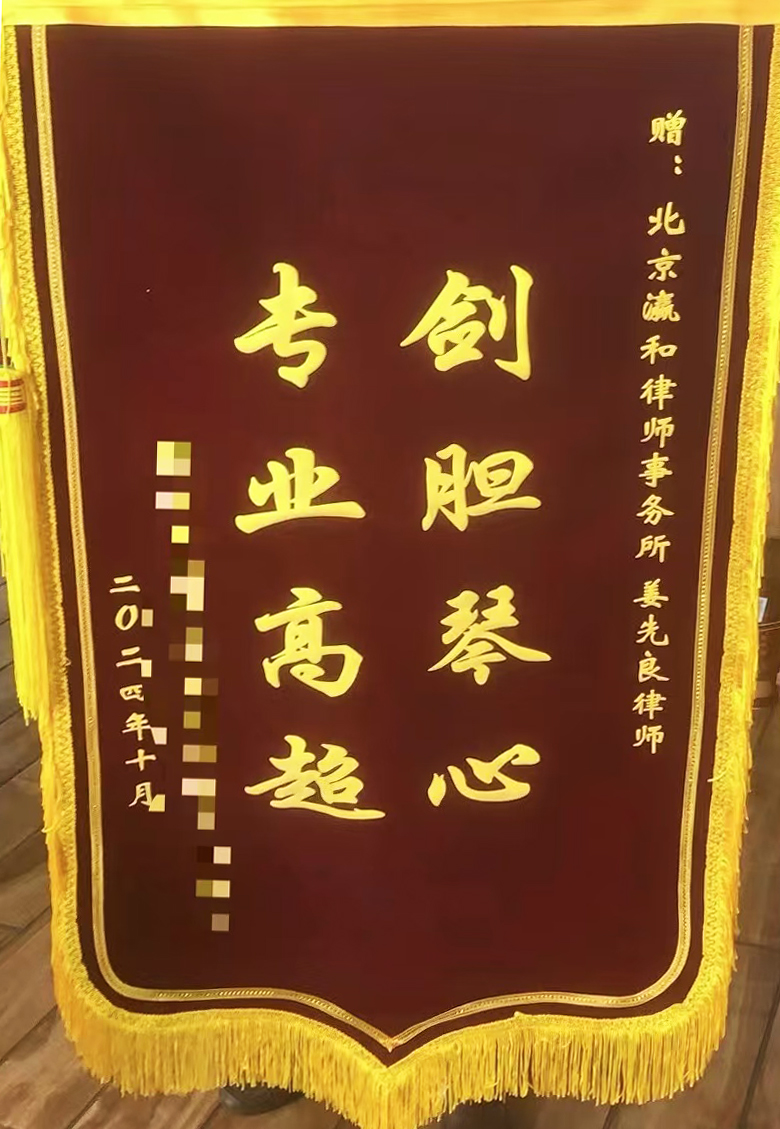 赠：北京瀛和律师事务所 姜先良律师
剑胆琴心
专业高超
二〇二四年十月